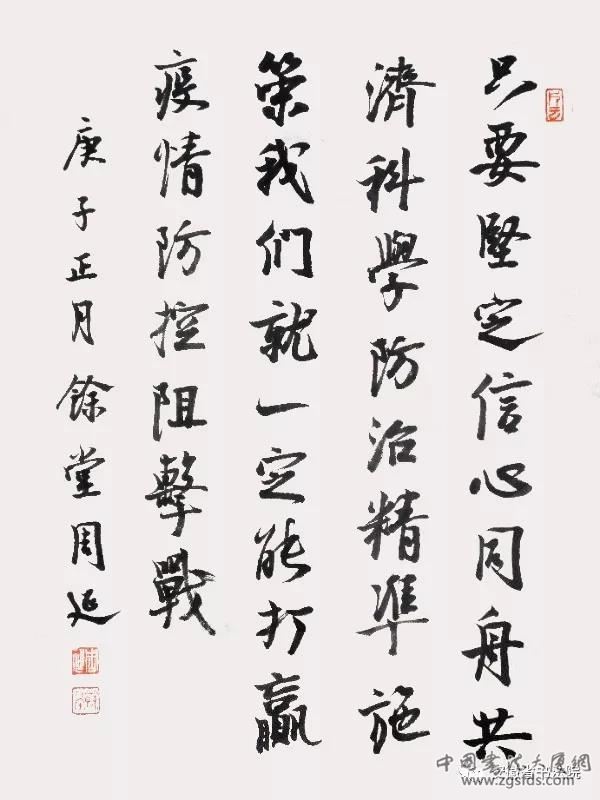 只要堅定信心同舟共
濟科學防治精準施
策我们就一定能打贏
疫情防控阻擊戰
庚子正月餘堂周延
中國書法大厦網
www.zgsfds.com